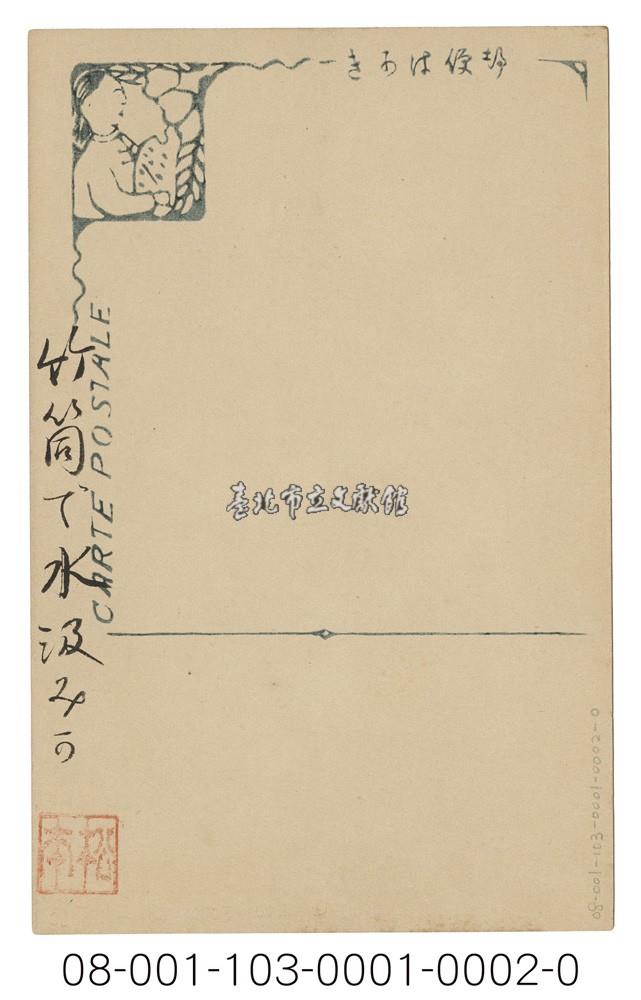 きかは便郵
CARTE POSTALE
竹筒で水汲み
臺北市立文獻館
08-001-103-0001-0002-0
08-001-103-0001-0002-0